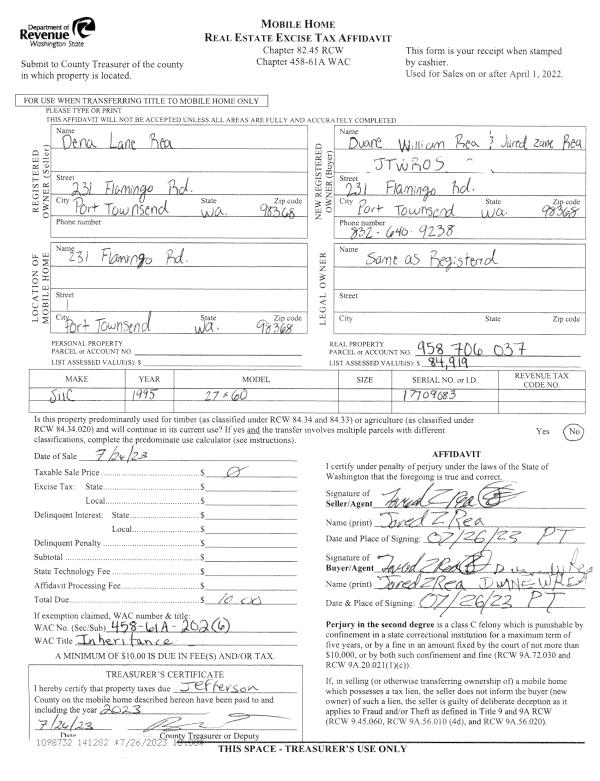 Department of
Revenue
Washington State
Submit to County Treasurer of the county
in which property is located.
MOBILE HOME
REAL ESTATE EXCISE TAX AFFIDAVIT
Chapter 82.45 RCW
Chapter 458-61A WAC
This form is your receipt when stamped
by cashier.
Used for Sales on or after April 1, 2022.
FOR USE WHEN TRANSFERRING TITLE TO MOBILE HOME ONLY
PLEASE TYPE OR PRINT
THIS AFFIDAVIT WILL NOT BE ACCEPTED UNLESS ALL AREAS ARE FULLY AND ACCURATELY COMPLETED
REGISTERED
OWNER (Seller)
Name
Dena Lane Rea
Street
231 Flamingo Rd.
City State Zip code
Port Townsend wa. 98368
Phone number
NEW REGISTERED
OWNER (Buyer)
Name
Duane William Rea & Jared Zane Rea
JTWROS
Street
231 Flamingo Rd.
City State Zip code
Port Townsend wa. 98368
Phone number
832-640-9238
LOCATION OF
MOBILE HOME
Name
231 Flamingo Rd.
Street
City State Zip code
Port Townsend wa. 98368
LEGAL OWNER
Name
Same as Registered
Street
City State Zip code
PERSONAL PROPERTY
PARCEL or ACCOUNT NO.
LIST ASSESSED VALUE(S): $
REAL PROPERTY
PARCEL or ACCOUNT NO. 958 706 037
LIST ASSESSED VALUE(S): $ 84,919
MAKE YEAR MODEL SIZE SERIAL NO. or I.D. REVENUE TAX
CODE NO.
1995 27x60 17709683
Is this property predominantly used for timber (as classified under RCW 84.34 and 84.33) or agriculture (as classified under
RCW 84.34.020) and will continue in its current use? If yes and the transfer involves multiple parcels with different
classifications, complete the predominate use calculator (see instructions).
Yes No
Date of Sale 7/24/23
Taxable Sale Price $ 0
Excise Tax: State $
Local $
Delinquent Interest: State $
Local $
Delinquent Penalty $
Subtotal $
State Technology Fee $
Affidavit Processing Fee $
Total Due $ 10 00
If exemption claimed, WAC number & title:
WAC No. (Sec/Sub) 458-61A-202(6)
WAC Title Inheritance
A MINIMUM OF $10.00 IS DUE IN FEE(S) AND/OR TAX.
TREASURER'S CERTIFICATE
I hereby certify that property taxes due Jefferson
County on the mobile home described hereon have been paid to and
including the year 2023
7/26/23
Date County Treasurer or Deputy
1098732 141282 *7/26/2023 10.00*
AFFIDAVIT
I certify under penalty of perjury under the laws of the State of
Washington that the foregoing is true and correct.
Signature of
Seller/Agent Jared Z Rea
Name (print) Jared Z Rea
Date and Place of Signing: 07/26/23 PT
Signature of
Buyer/Agent Jared Z Rea
Name (print) Jared Z Rea DUANE W REA
Date & Place of Signing: 07/26/23 PT
Perjury in the second degree is a class C felony which is punishable by
confinement in a state correctional institution for a maximum term of
five years, or by a fine in an amount fixed by the court of not more than
$10,000, or by both such confinement and fine (RCW 9A.72.030 and
RCW 9A.20.021(1)(c)).
If, in selling (or otherwise transferring ownership of) a mobile home
which possesses a tax lien, the seller does not inform the buyer (new
owner) of such a lien, the seller is guilty of deliberate deception as it
applies to Fraud and/or Theft as defined in Title 9 and 9A RCW
(RCW 9.45.060, RCW 9A.56.010 (4d), and RCW 9A.56.020).
THIS SPACE - TREASURER'S USE ONLY